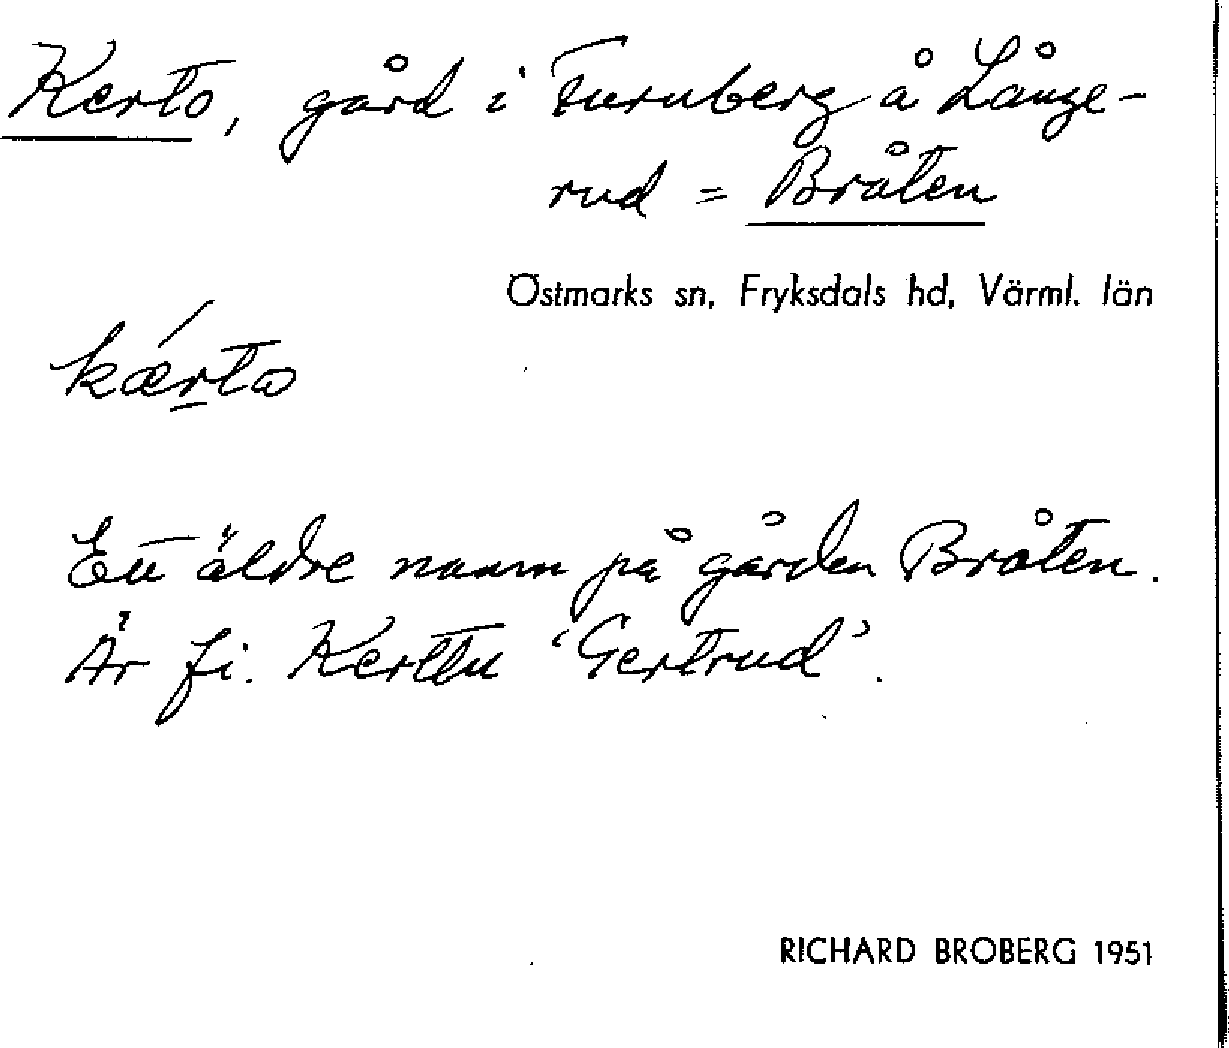 Kerto, gård i Furuberg å Långe-
rud = Bråten
Östmarks sn, Fryksdals hd, Värml. län
kærto
Ett äldre namn på gården Bråten.
Är fi. Kerttu 'Gertrud'.
RICHARD BROBERG 1951